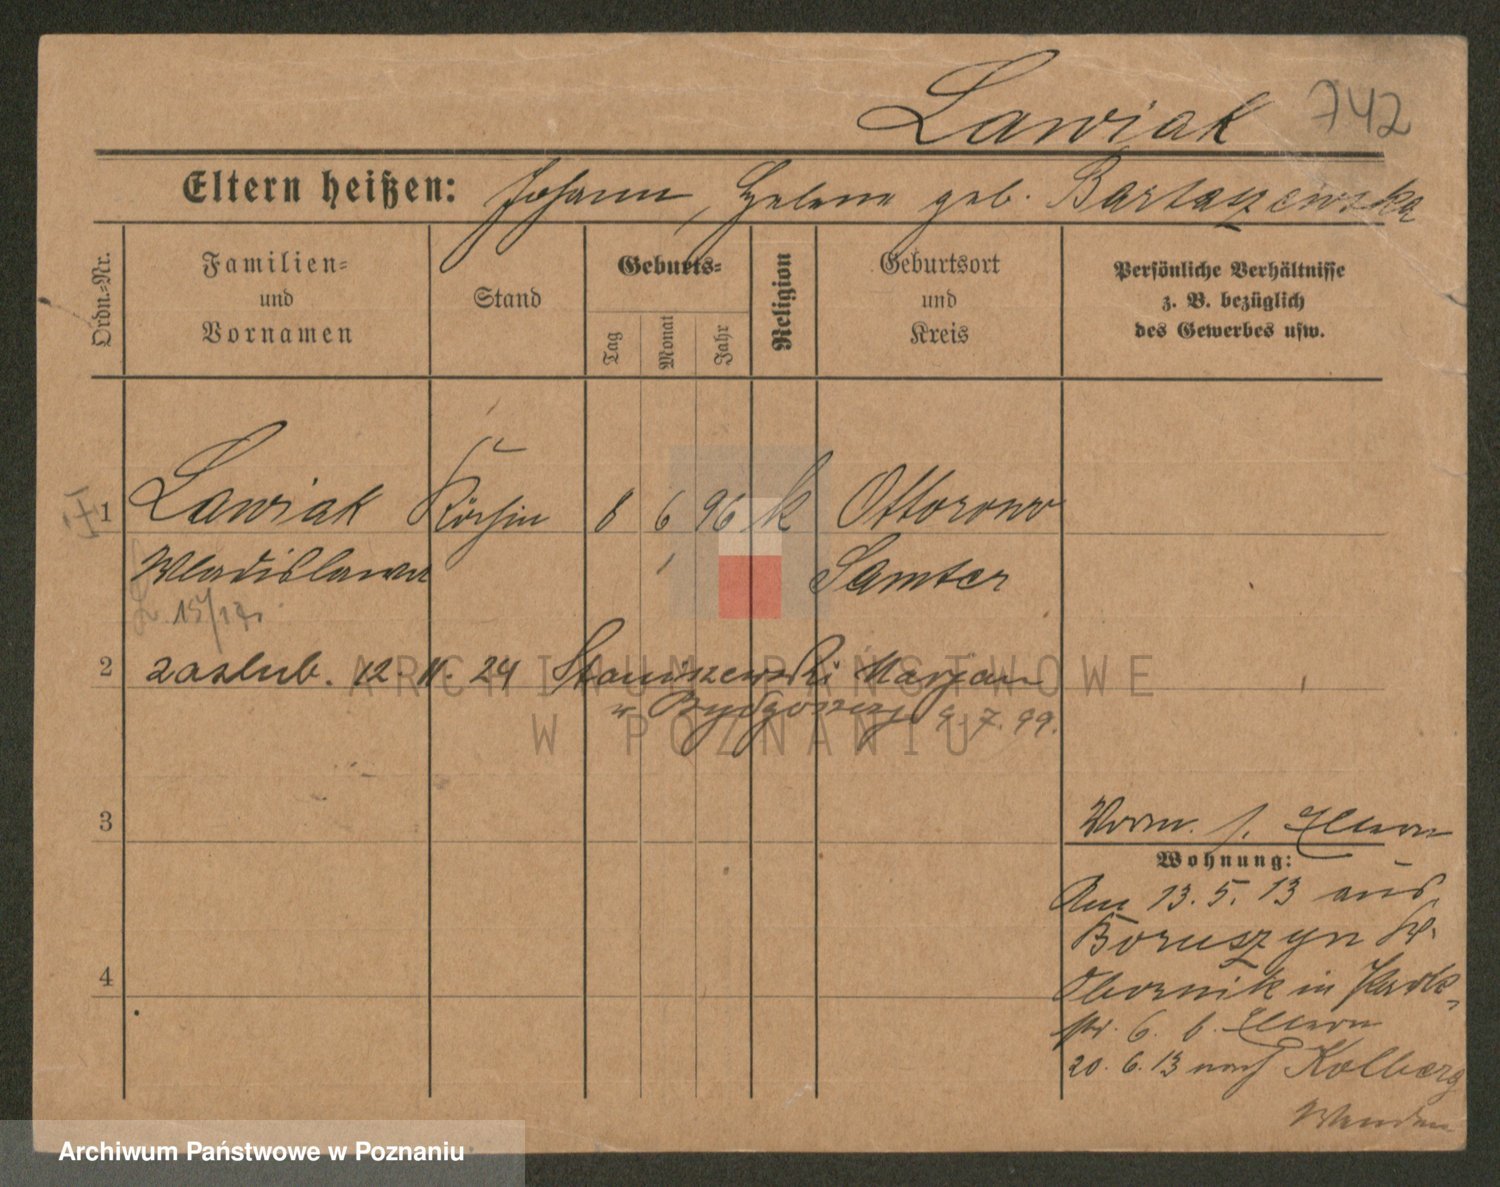 Lawiak 742
Eltern heißen: Johann, Helene geb. Bartaszewska
Ordn.-Nr.
Familien-
und
Vornamen
Stand
Geburts-
Tag
Monat
Jahr
Religion
Geburtsort
und
Kreis
Persönliche Verhältnisse
z. B. bezüglich
des Gewerbes usw.
1 Lawiak Köchin 8 6 96 k Ottorowo
Wladislawa Samter
15/17
2 zaslub. 12. 11. 24 Staniszewski Maryan
w Bydgoszczy 9. 7. 99.
3
Vorm. s. Eltern
Wohnung:
Am 13. 5. 13 aus
Boruszyn Kr.
4
Obornik in Park-
str. 6. b. Eltern
20. 6. 13 nach Kolberg
ARCHIWUM PAŃSTWOWE
W POZNANIU
Archiwum Państwowe w Poznaniu